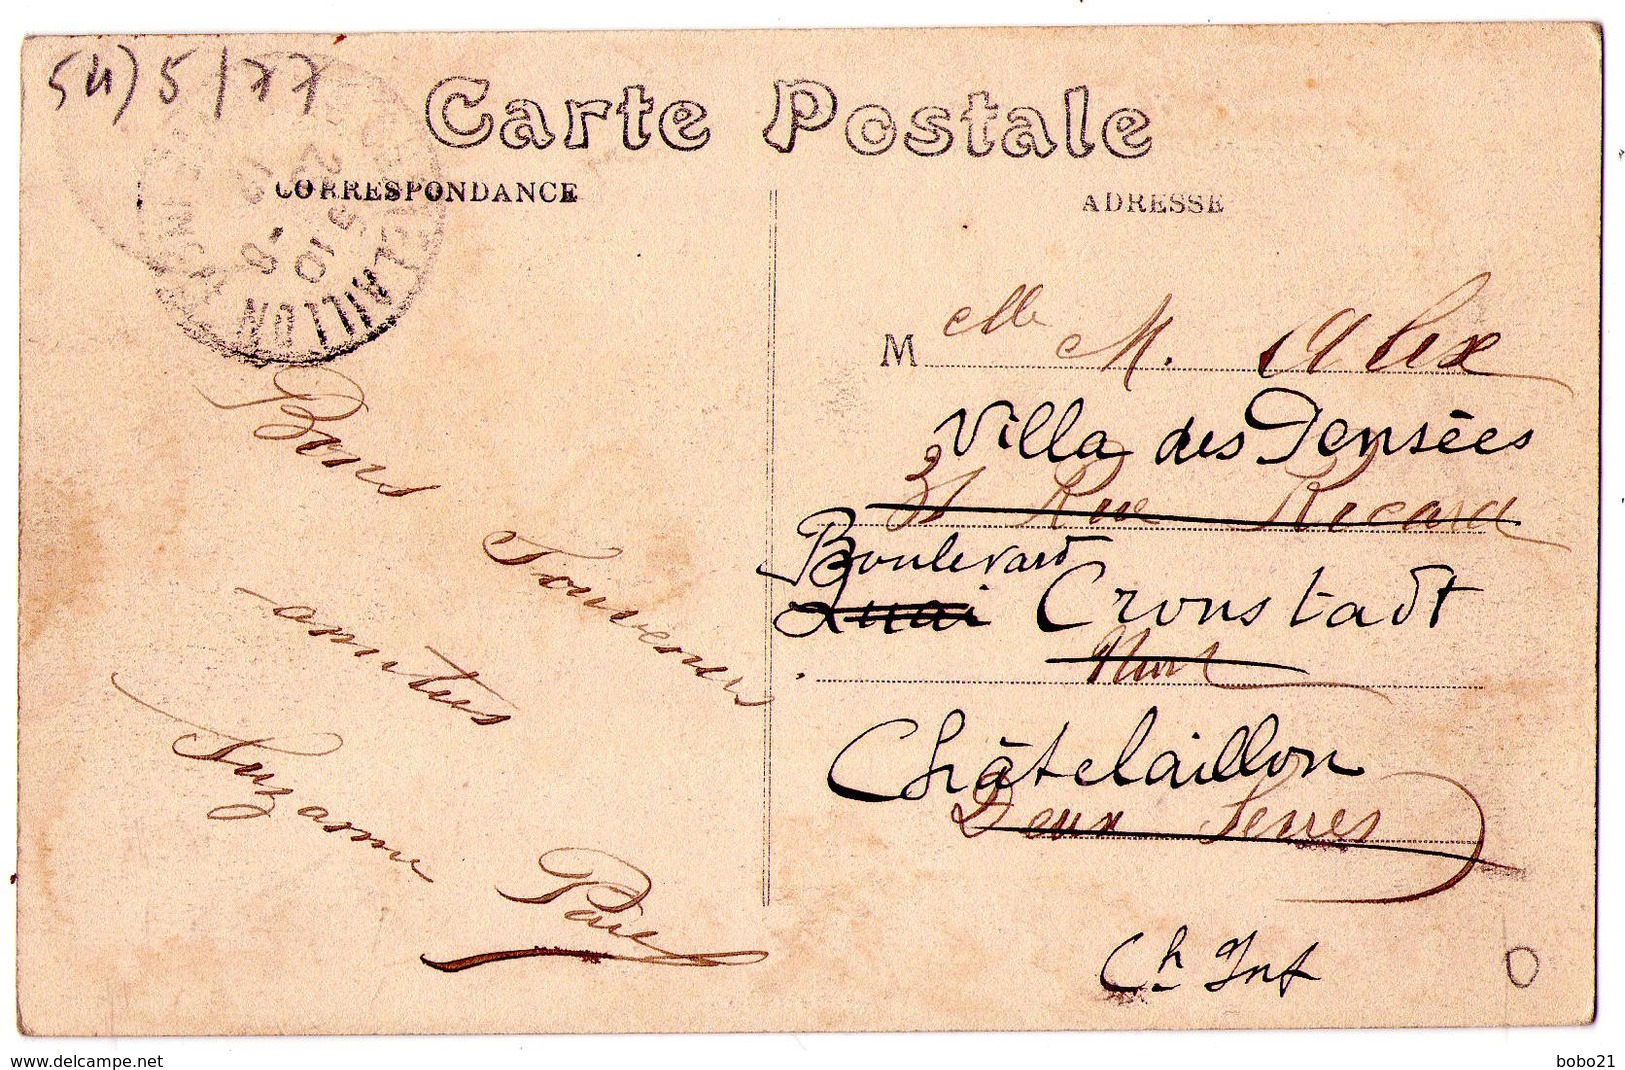 54) 5/77
Carte Postale
CORRESPONDANCE
ADRESSE
Bons
Souvenirs
amities
Suzanne
M elle M. Alix
Villa des Pensées
31 Rue Ricard
Boulevard
Quai Cronstadt
Niort
Châtelaillon
Deux Sevres
Ch Inf
www.delcampe.net
bobo21